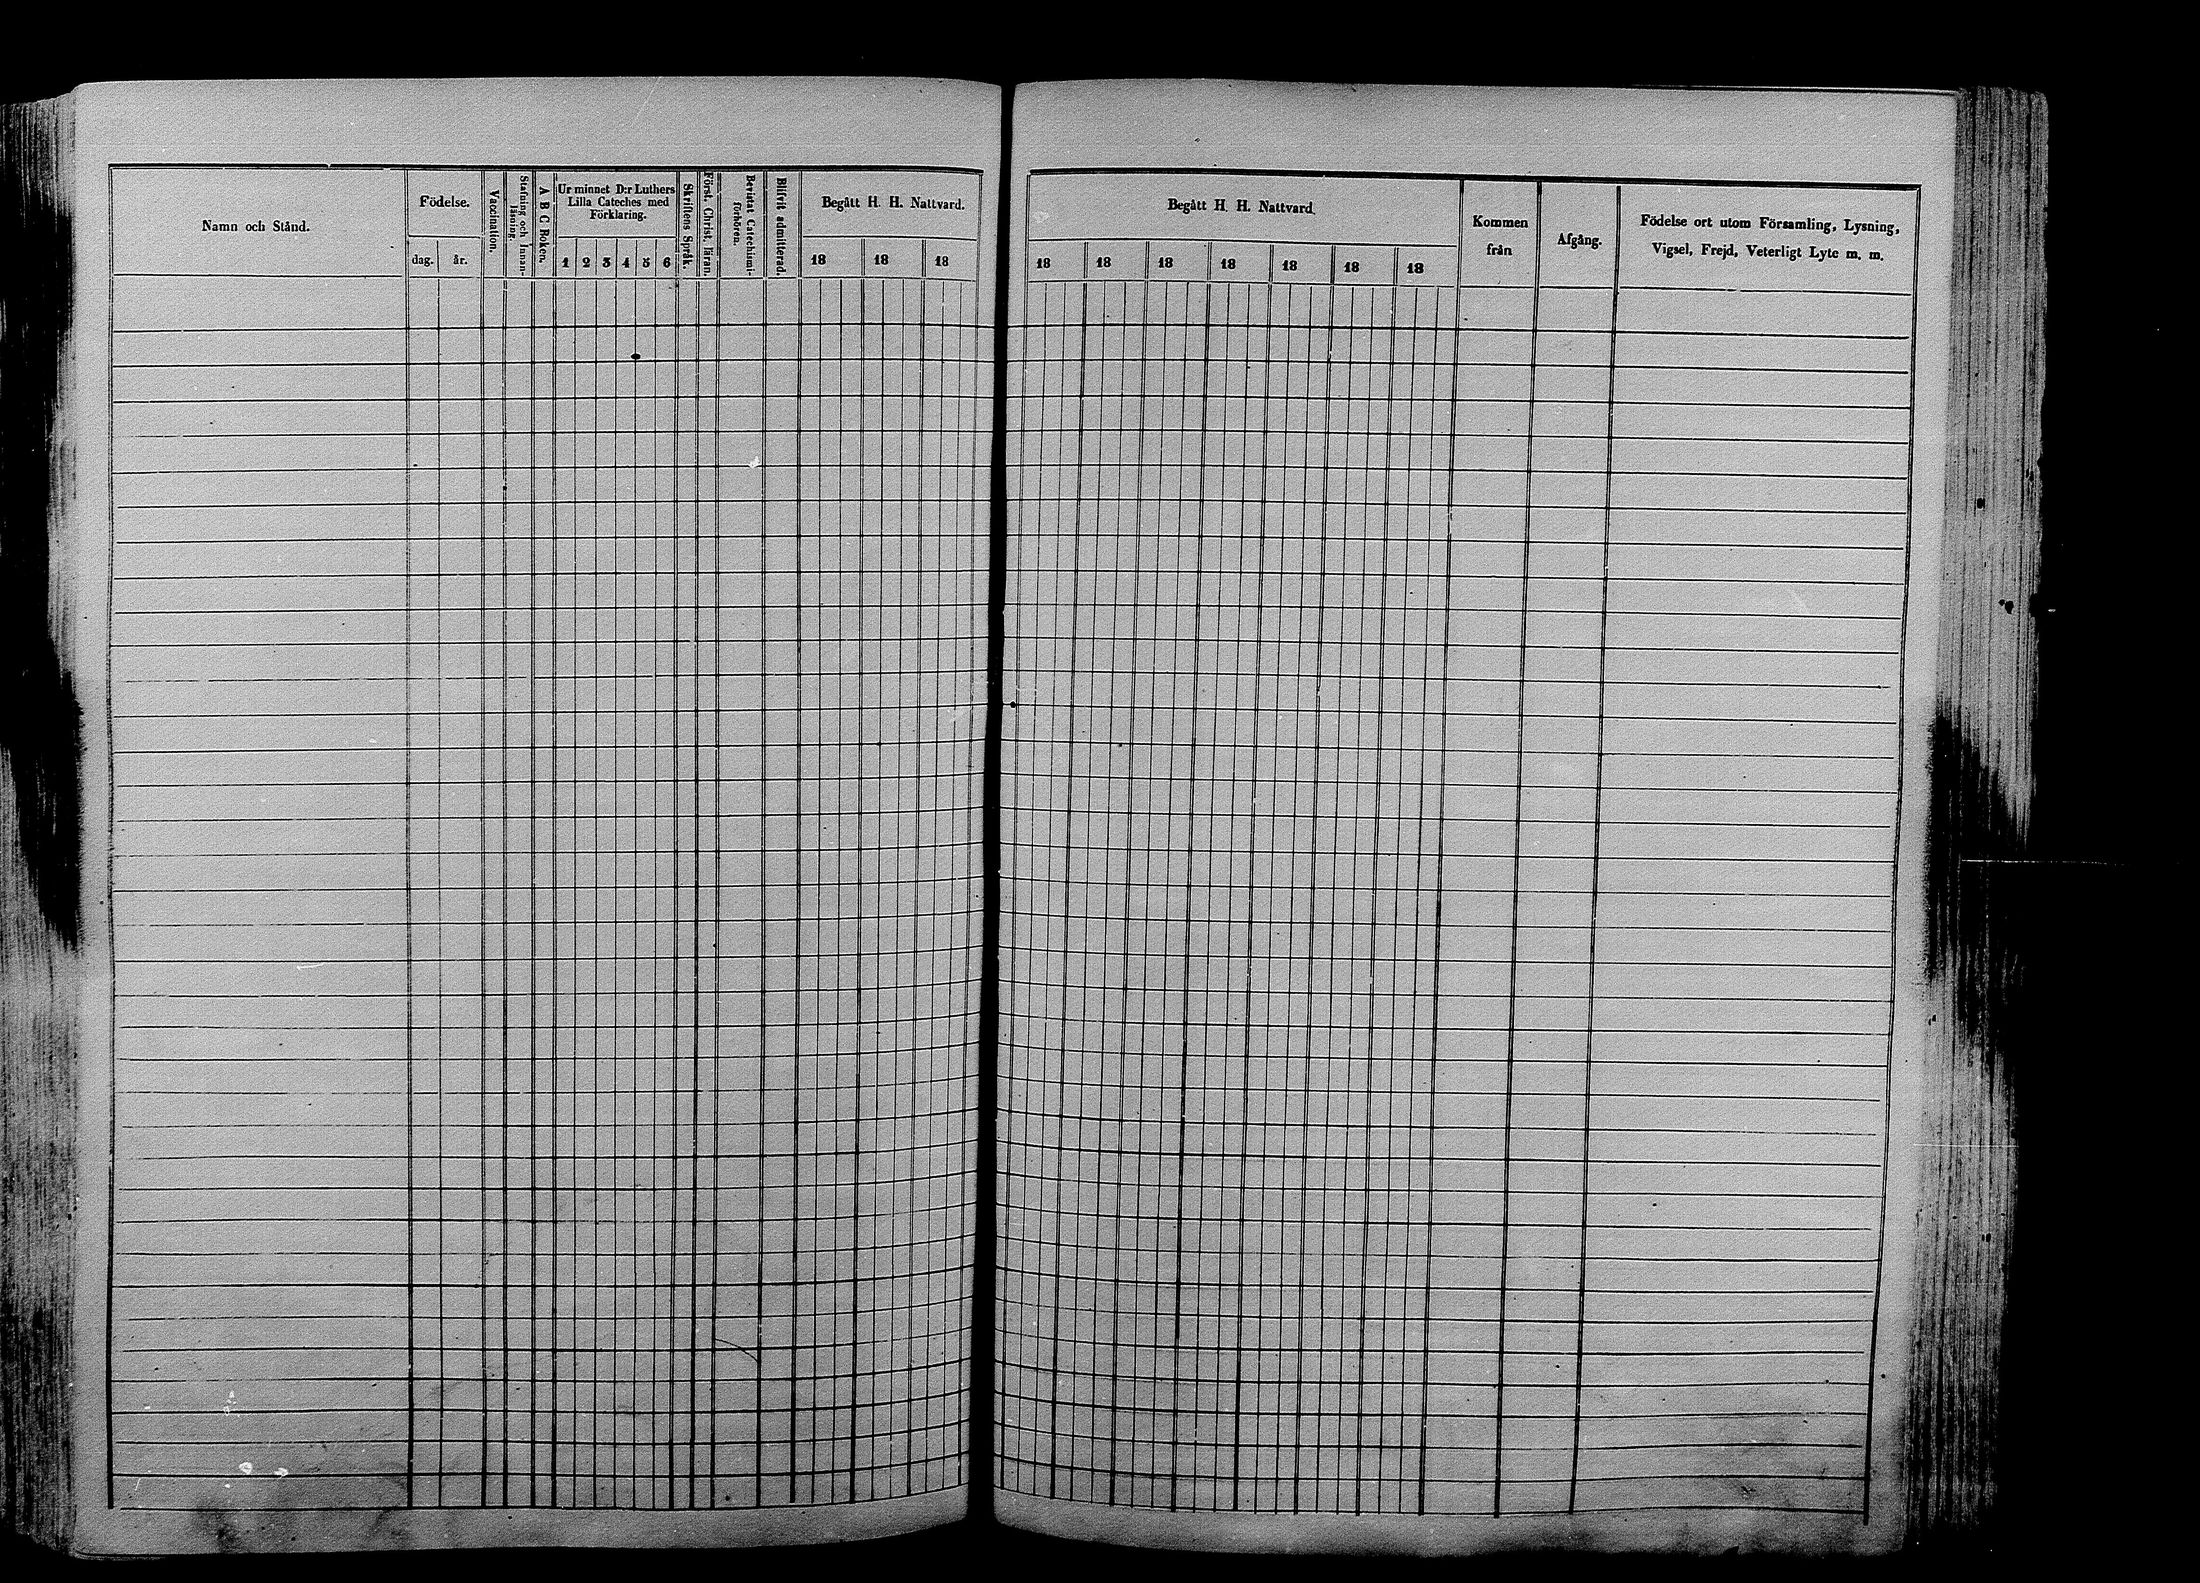 Namn och Stånd.
Födelse.
dag. år.
Vaccination.
Stafning och Innan-
läsning.
A B C Boken.
Ur minnet D:r Luthers
Lilla Cateches med
Förklaring.
1 2 3 4 5 6
Skriftens Språk.
Först. Christ. läran.
Bevistat Catechismi-
förhören.
Blifvit admitterad.
Begått H. H. Nattvard.
18 18 18
Begått H. H. Nattvard.
18 18 18 18 18 18 18
Kommen
från
Afgång.
Födelse ort utom Församling, Lysning,
Vigsel, Frejd, Veterligt Lyte m. m.